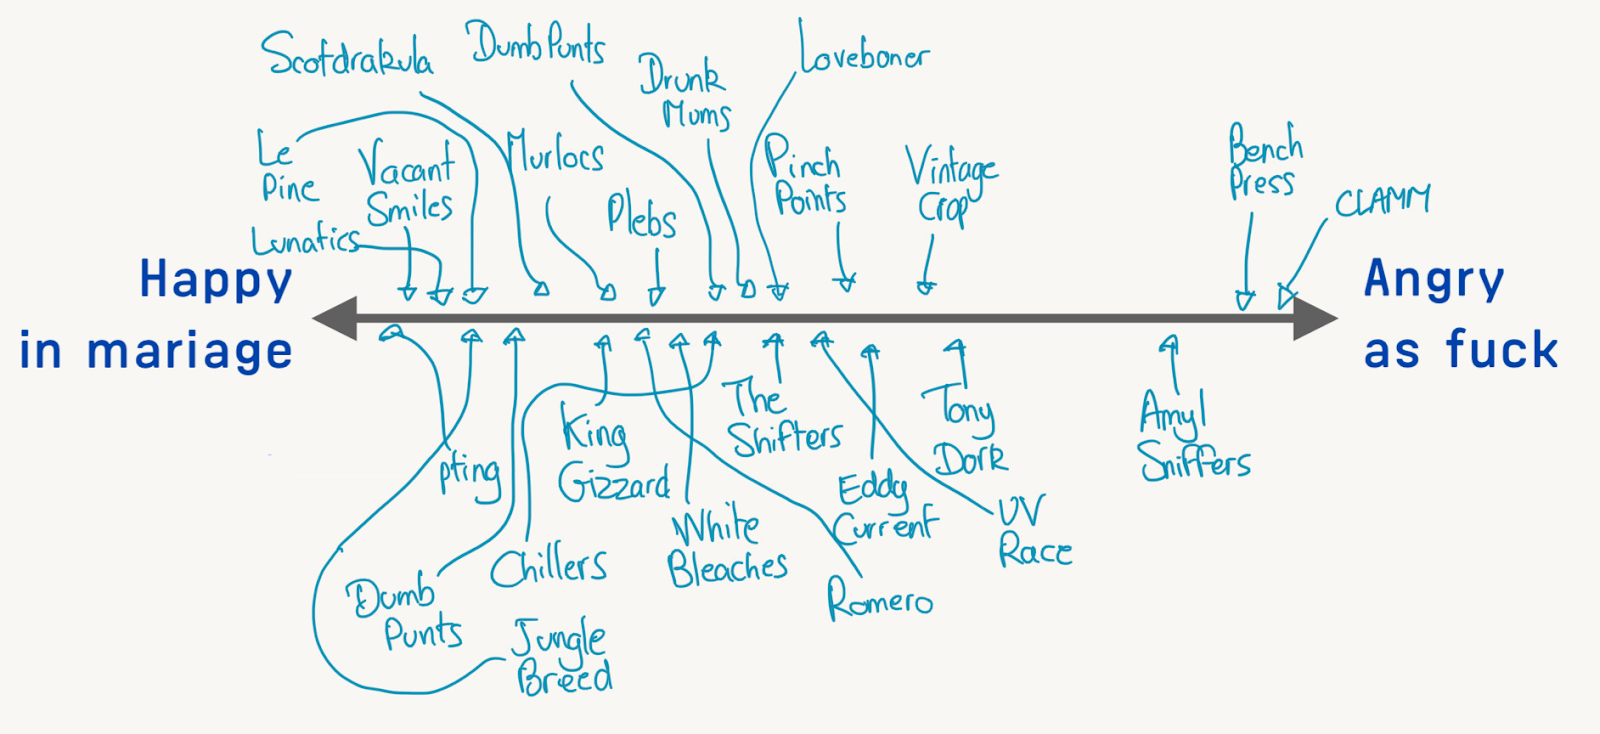 Scotdrakula
Dumb Punts
Drunk
Mums
Loveboner
Le
Pine
Vacant
Smiles
Murlocs
Plebs
Pinch
Points
Vintage
Crop
Bench
Press
CLAMM
Lunatics
Happy
in mariage
Angry
as fuck
pting
King
Gizzard
The
Shifters
Tony
Dork
Amyl
Sniffers
Eddy
Current
UV
Race
White
Bleaches
Chillers
Romero
Dumb
Punts
Jungle
Breed